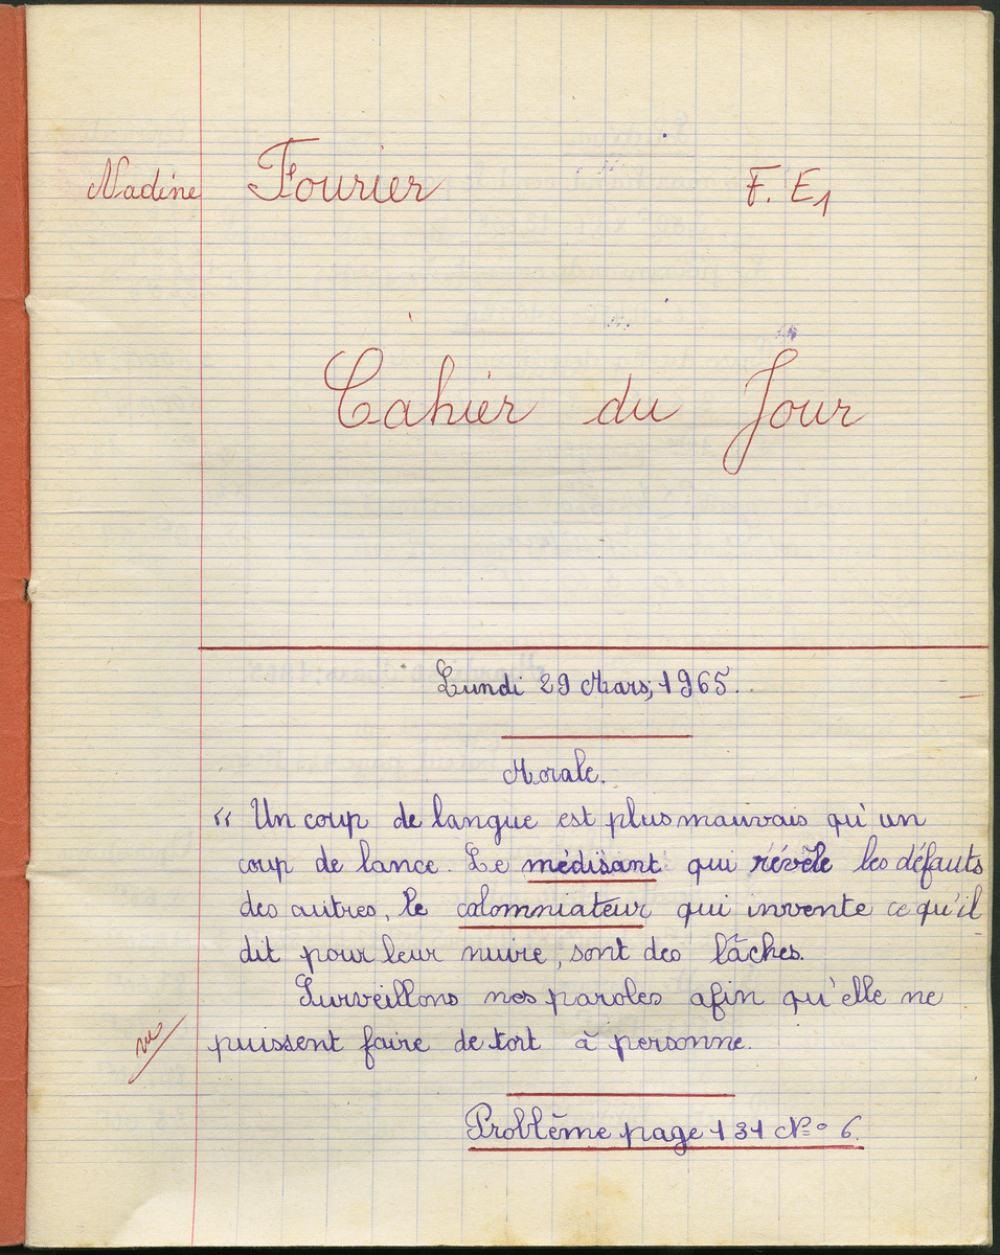 Nadine Fourier F. E1
Cahier du Jour
Lundi 29 Mars, 1965.
Morale.
" Un coup de langue est plus mauvais qu'un
coup de lance. Le médisant qui révèle les défauts
des autres, le calomniateur qui invente ce qu'il
dit pour leur nuire, sont des lâches.
Surveillons nos paroles afin qu'elle ne
puissent faire de tort à personne.
vu
Problème page 131 N° 6.